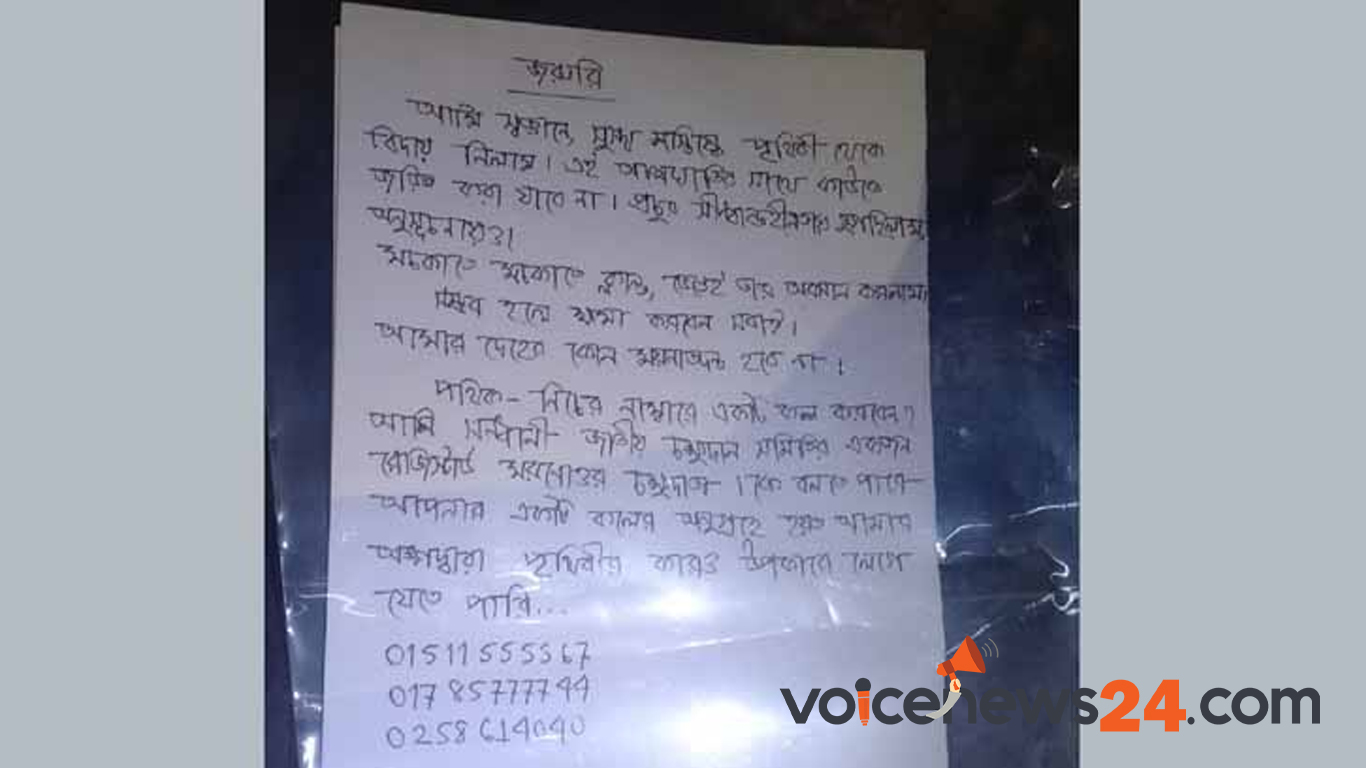 জরুরি
আমি স্বজ্ঞানে, সুস্থ মস্তিষ্কে পৃথিবী থেকে
বিদায় নিলাম। এই আত্মহত্যার সাথে কাউকে
জড়িত করা যাবে না। প্রচুর সীদ্ধান্তহীনতায়
অনুসূচনায়ও।
ক্লান্ত, তার অবসান করলাম।
সম্ভব হলে ক্ষমা করবেন সবাই।
আমার দেহের কোন ময়নাতদন্ত হবে না।
পথিক- নিচের নাম্বারে একটি কল করবেন।
আমি সন্ধানী জাতীয় চক্ষুদান সমিতির একজন
রেজিস্টার্ড মরনোত্তর চক্ষুদাতা। কে বলতে পারে
আপনার একটি কলের অনুগ্রহে হয়ত আমার
অঙ্গদ্বারা পৃথিবীর কারও উপকারে লেগে
যেতে পারি...
01511555367
01785777744
0258614040
voicenews24.com